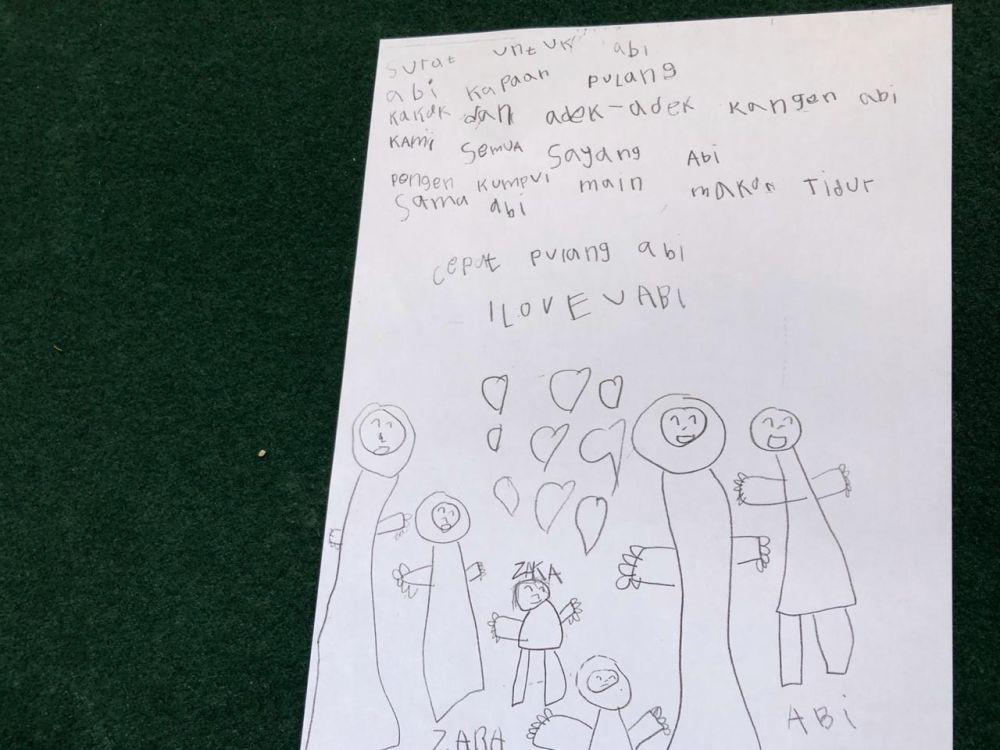 surat untuk abi
abi kapaan pulang
kakak dan adek-adek kangen abi
kami semua sayang Abi
pengen kumpul main makan Tidur
sama abi
cepat pulang abi
I LOVE U ABI
ZAKA
ABi
ZARA